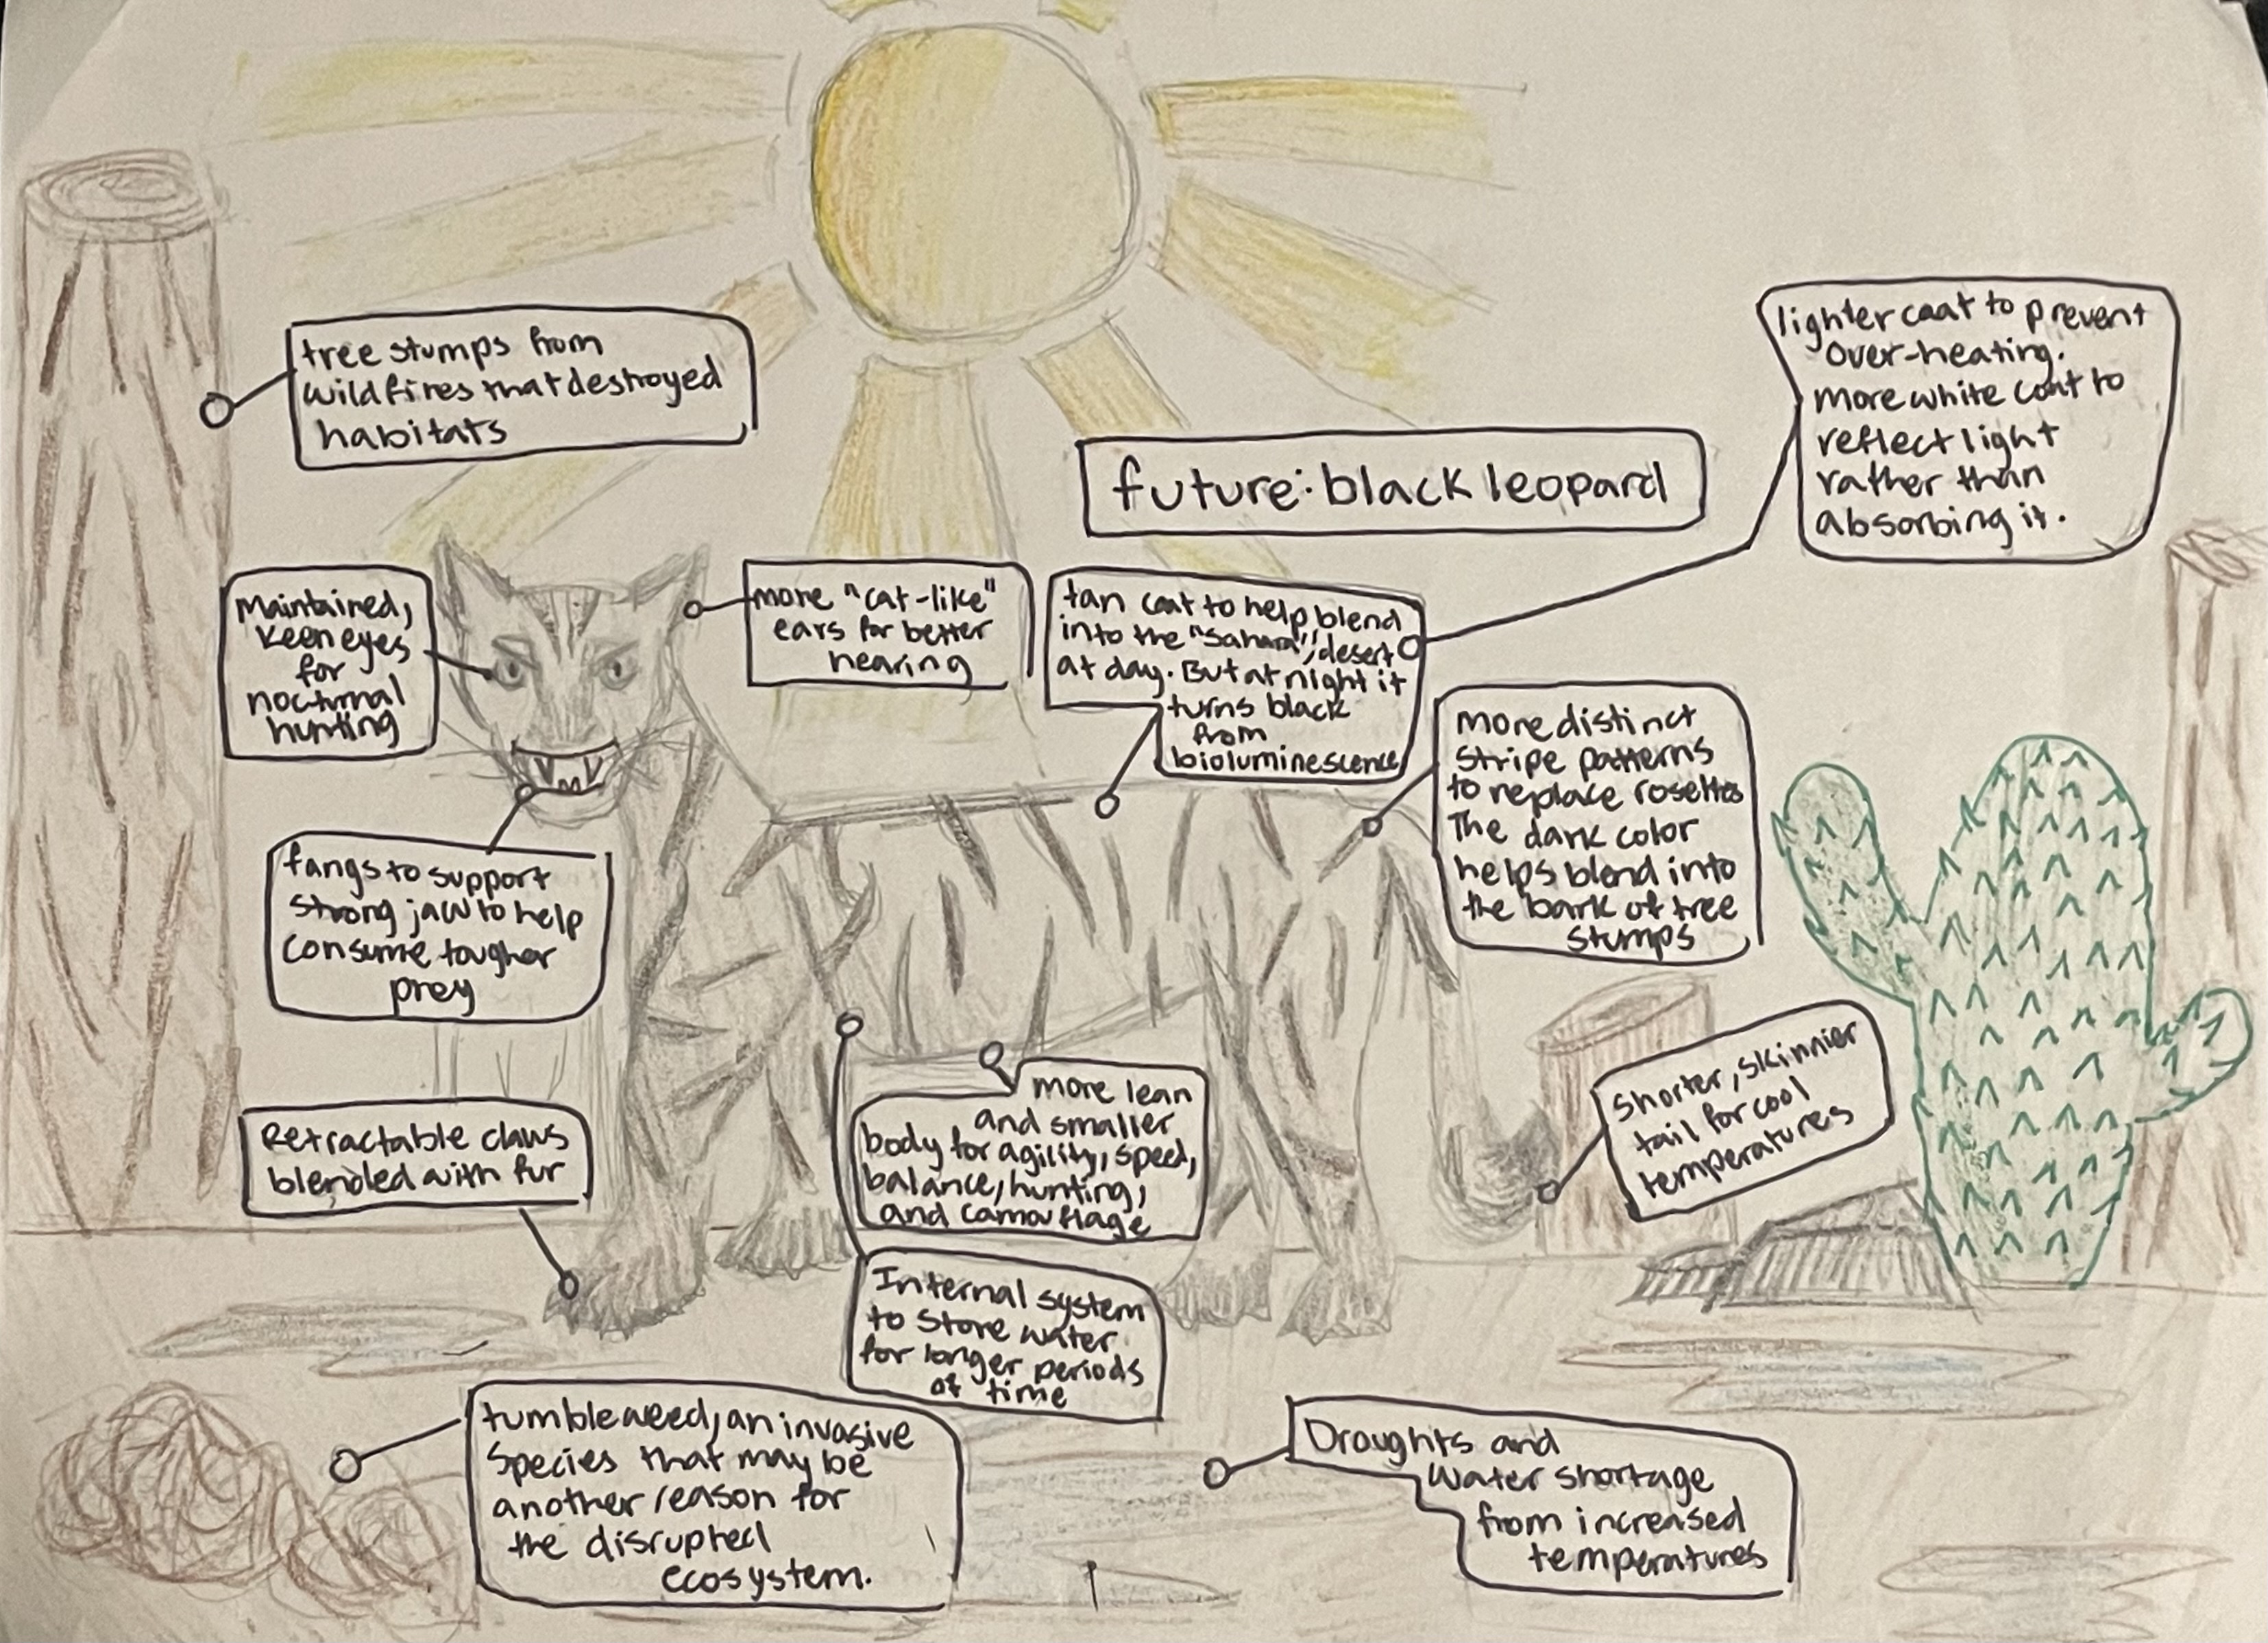 tree stumps from
wildfires that destroyed
habitats
lighter coat to prevent
over-heating.
more white coat to
reflect light
rather than
absorbing it.
future: black leopard
Maintained,
keen eyes
for
nocturnal
hunting
more "cat-like"
ears for better
hearing
tan coat to help blend
into the "Sahara"/desert
at day. But at night it
turns black
from
bioluminescence
more distinct
stripe patterns
to replace rosettes
The dark color
helps blend into
the bark of tree
stumps
fangs to support
strong jaw to help
consume tougher
prey
Shorter, skinnier
tail for cool
temperatures
more lean
and smaller
body for agility, speed,
balance, hunting,
and camouflage
Retractable claws
blended with fur
Internal system
to store water
for longer periods
of time
tumbleweed, an invasive
species that may be
another reason for
the disrupted
ecosystem.
Droughts and
water shortage
from increased
temperatures